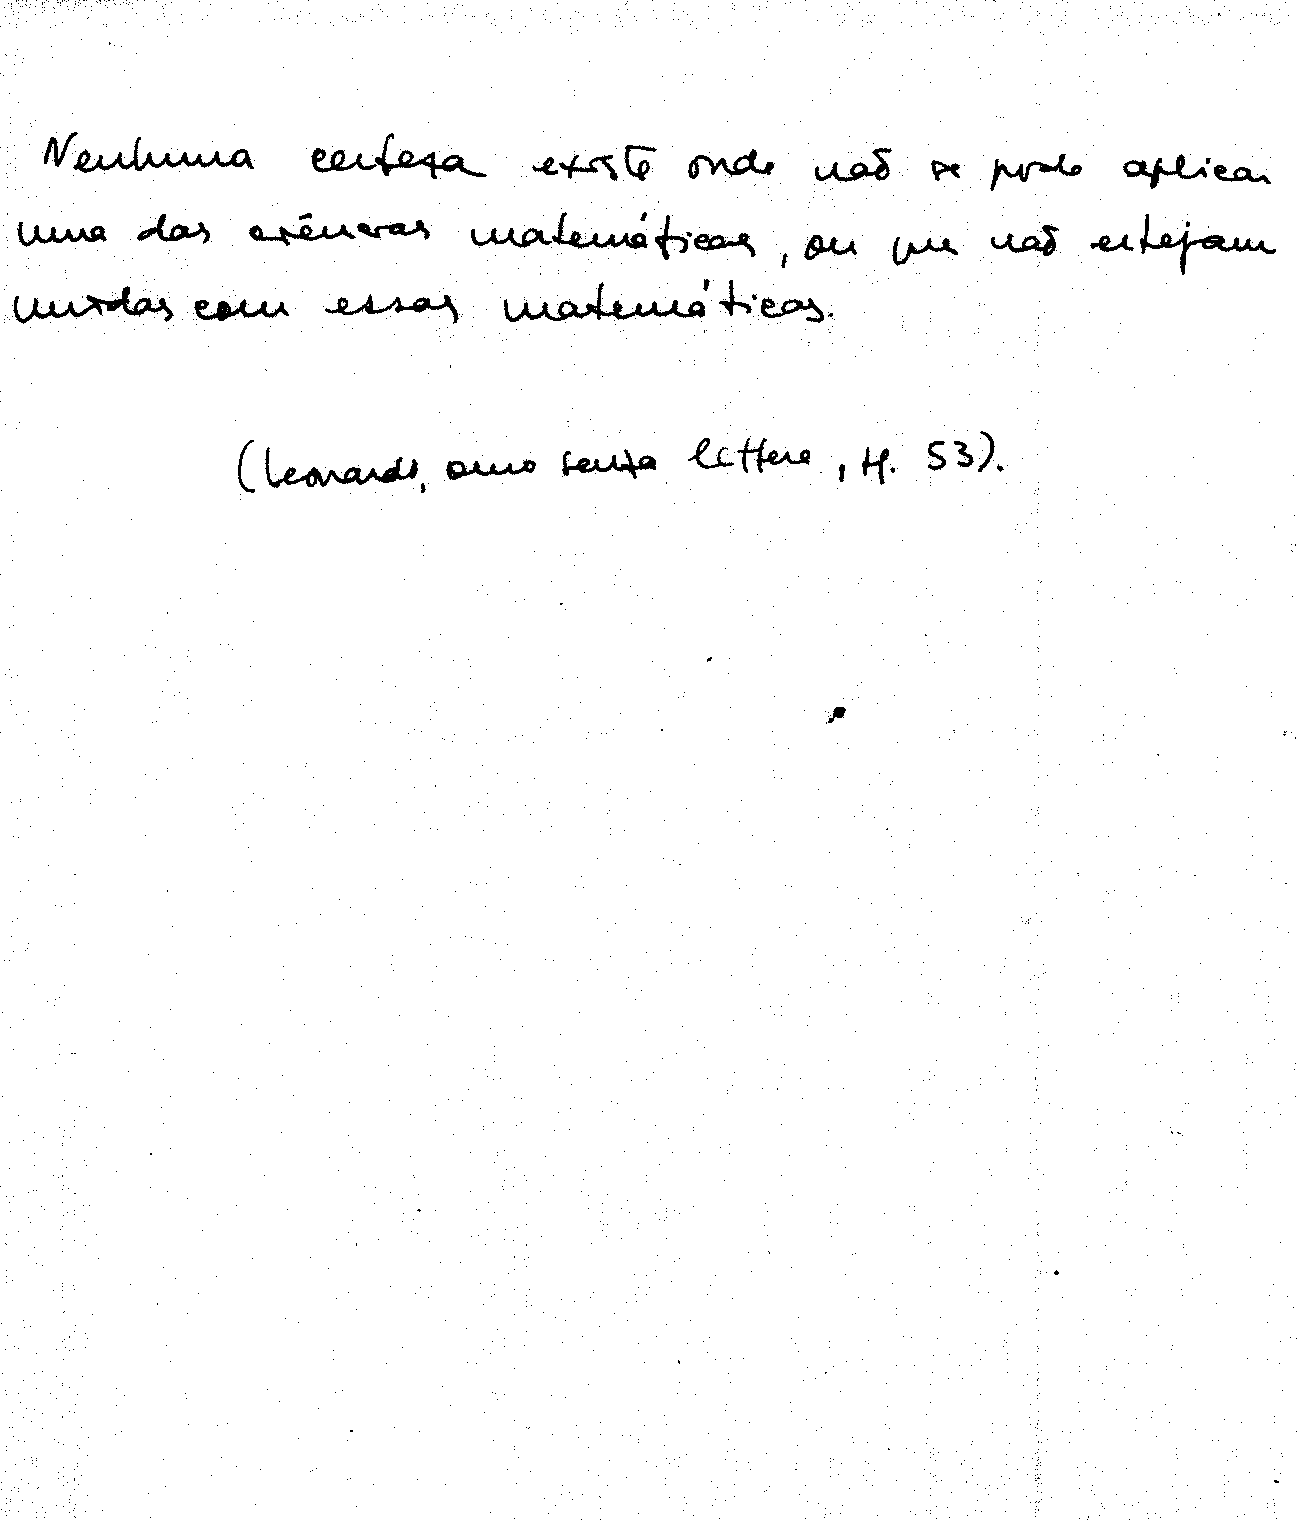 Nenhuma certeza existe onde não se pode aplicar
uma das ciências matemáticas, ou que não estejam
unidas com essas matemáticas.
(Leonardo, omo senza lettere, p. 53).